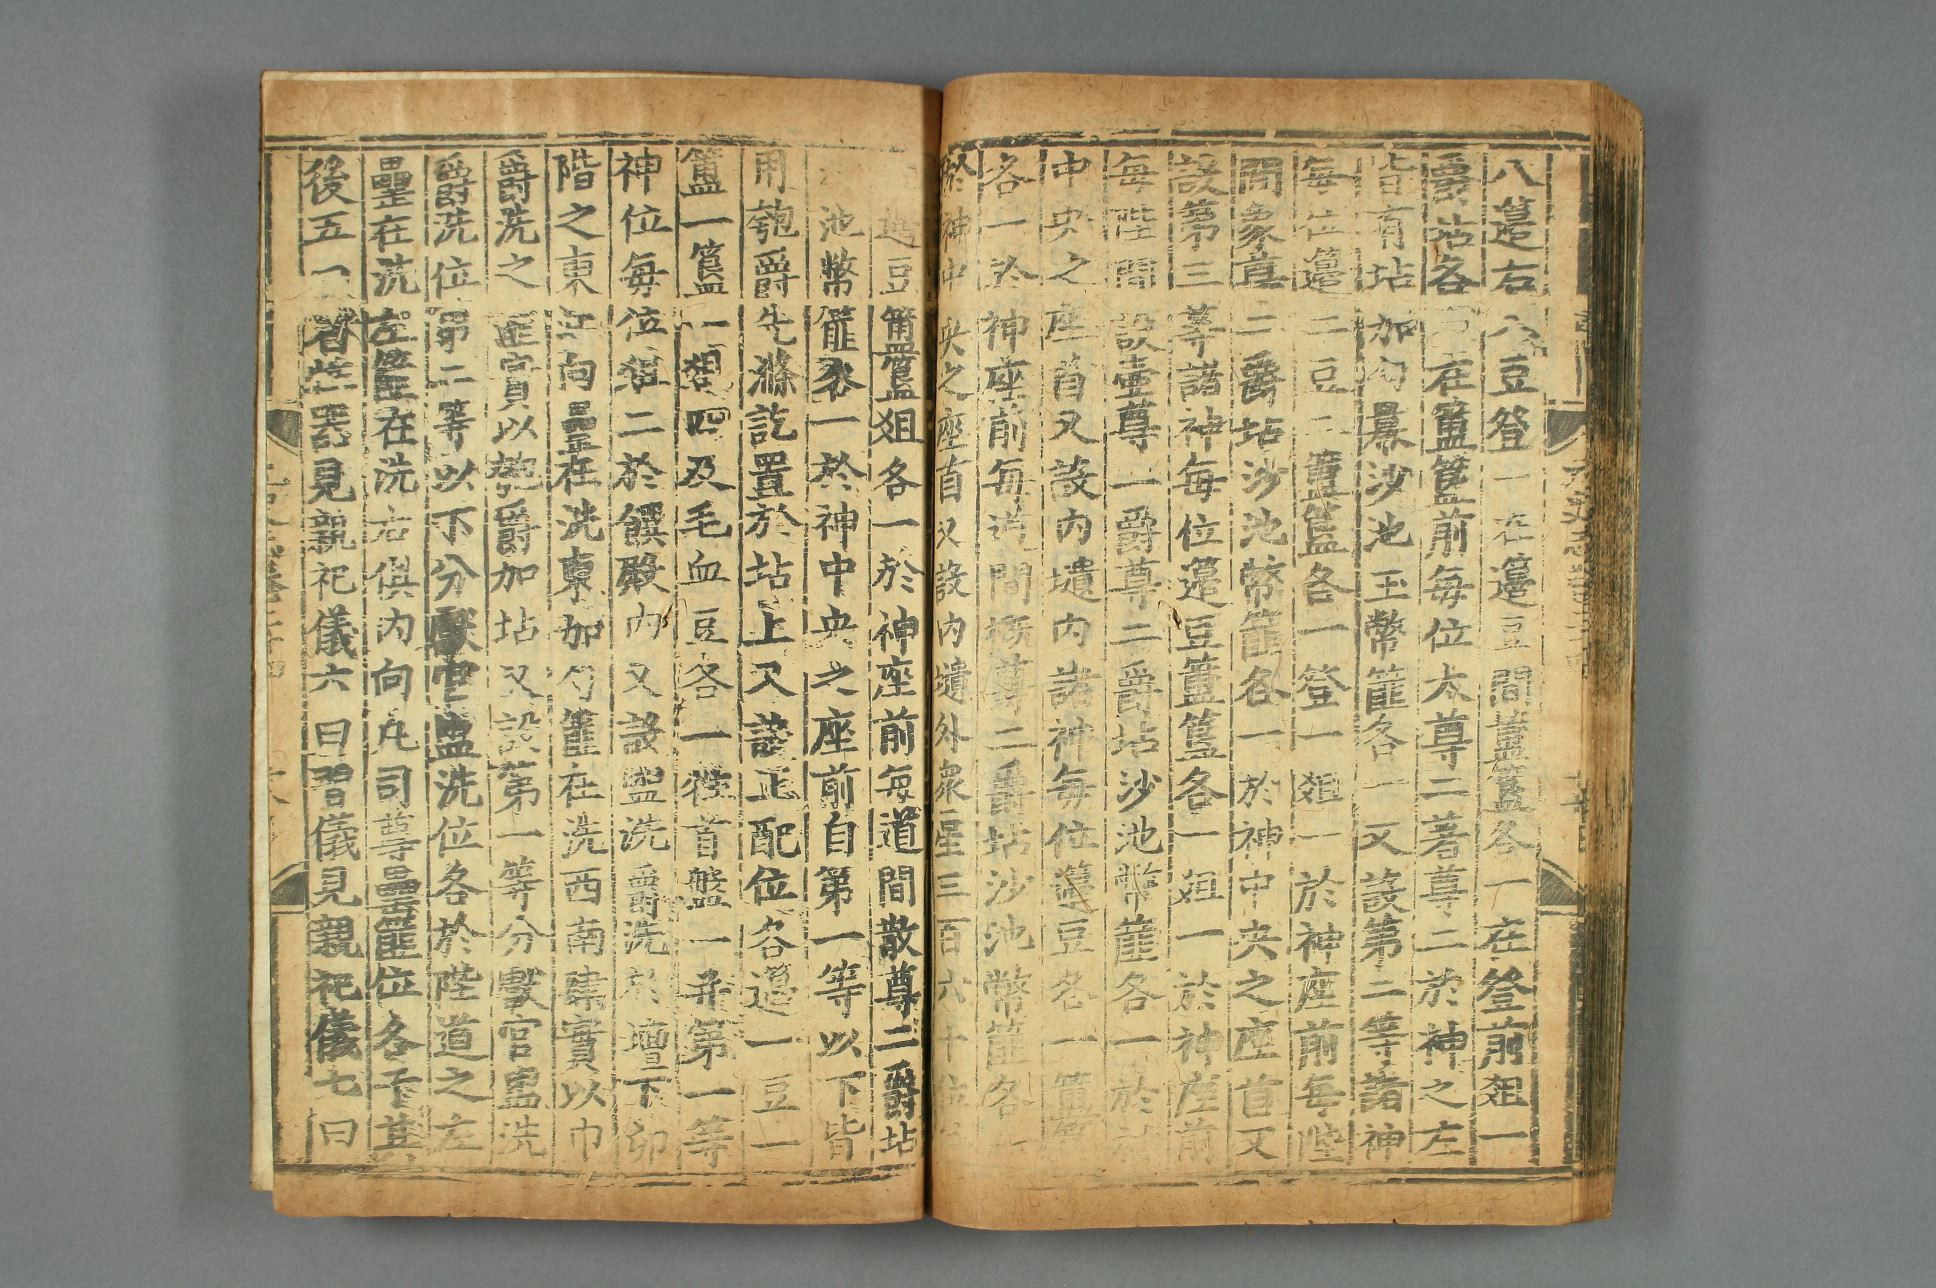 八籩右八豆登一在籩豆間簠簋各一在登前俎一
爵坫各一在簠簋前每位太尊二著尊二於神之左
皆有坫加勺羃沙池玉幣篚各一又設第二等諸神
每位籩二豆二簠簋各一登一俎一於神座前每陛
間象尊二爵坫沙池幣篚各一於神中央之座首又
設第三等諸神每位籩豆簠簋各一俎一於神座前
每陛間設壺尊二爵尊二爵坫沙池幣篚各一於神
中央之座首又設內壝內諸神每位籩豆各一簠簋
各一於神座前每道間概尊二爵坫沙池幣篚各一
於神中央之座首又設內壝外衆星三百六十位
邊豆簠簋俎各一於神座前每道間散尊二爵坫
沙池幣篚各一於神中央之座前自第一等以下皆
用匏爵先滌訖置於坫上又設正配位各籩一豆一
簠一簋一俎四及毛血豆各一牲首盤一并第一等
神位每位俎二於饌殿內又設盥洗爵洗於壇下卯
階之東北向罍在洗東加勺篚在洗西南肆實以巾
爵洗之篚實以匏爵加坫又設第一等分獻官盥洗
爵洗位第二等以下分獻官盥洗位各於陛道之左
罍在洗左篚在洗右俱內向凡司尊罍篚位各於其
後五曰省牲器見親祀儀六曰習儀見親祀儀七曰